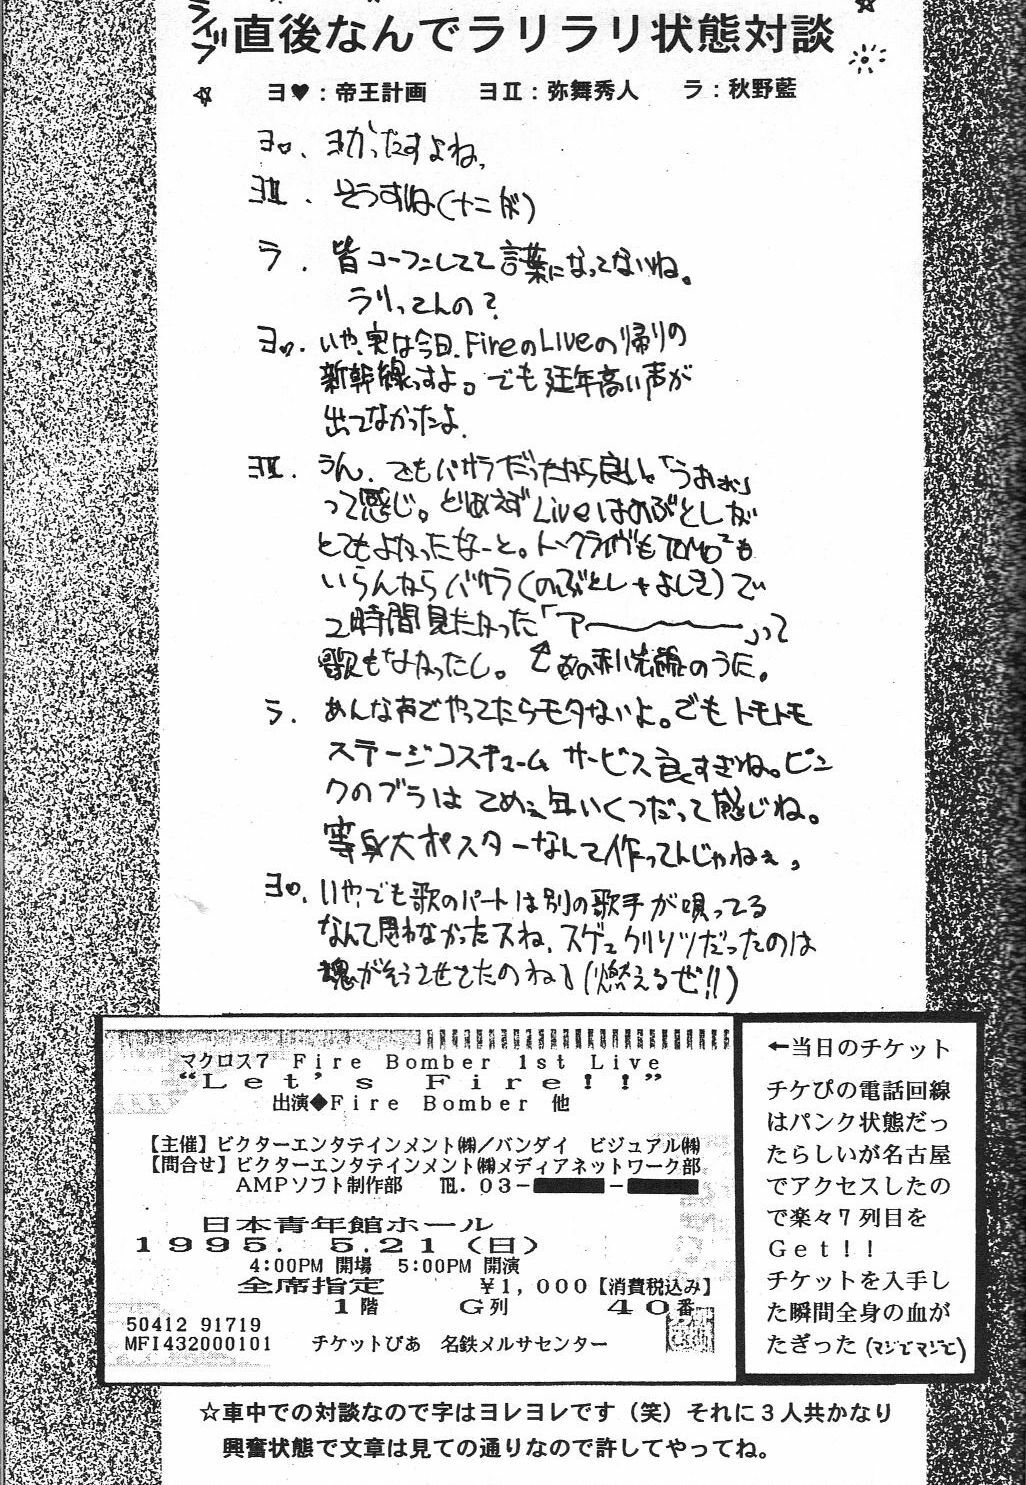 ライブ
直後なんでラリラリ状態対談
☆ ヨ♥：帝王計画　ヨⅡ：弥舞秀人　ラ：秋野藍
ヨ♡. ヨかったすよね、
ヨⅡ. そうすね(ナニが)
ラ. 皆コーフンしてて言葉になってないね。
ラリってんの？
ヨ♡. いや、実は今日、FireのLiveの帰りの
新幹線っすよ。でも延年高い声が
出てなかったよ.
ヨⅡ. うん、でもバサラだったから良いや「うおぉぉ」
って感じ。とりあえずLiveはのぶとしが
とてもよかったなーと。トークライヴもTOMO²も
いらんからバサラ(のぶとし+よしき)で
2時間見たかった「アーーーー」って
歌もなかったし。 ↖あの利 のうた。
ラ. あんな声でやってたらモタないよ。でもトモトモ
ステージコスチューム サービス良すぎね。ピン
クのブラはてめェ年いくつだって感じね。
等身大ポスターなんて作ってんじゃねェ、
ヨ♡. いや、でも歌のパートは別の歌手が唄ってる
なんて思わなかったスね、スゲェクリソツだったのは
魂がそうさせてたのね♪(燃えるぜ!!)
マクロス7 Fire Bomber 1st Live
“Let's Fire!!”
出演◆Fire Bomber 他
【主催】ビクターエンタテインメント㈱／バンダイ ビジュアル㈱
【問合せ】ビクターエンタテインメント㈱メディアネットワーク部
AMPソフト制作部 ℡. 03-
日本青年館ホール
1995. 5.21 (日)
4:00PM 開場 5:00PM 開演
全席指定 ￥1,000【消費税込み】
1階 G列 40番
50412 91719
MFI432000101 チケットぴあ 名鉄メルサセンター
←当日のチケット
チケぴの電話回線
はパンク状態だっ
たらしいが名古屋
でアクセスしたの
で楽々７列目を
Get!!
チケットを入手し
た瞬間全身の血が
たぎった(マジでマジで)
☆車中での対談なので字はヨレヨレです（笑）それに３人共かなり
興奮状態で文章は見ての通りなので許してやってね。